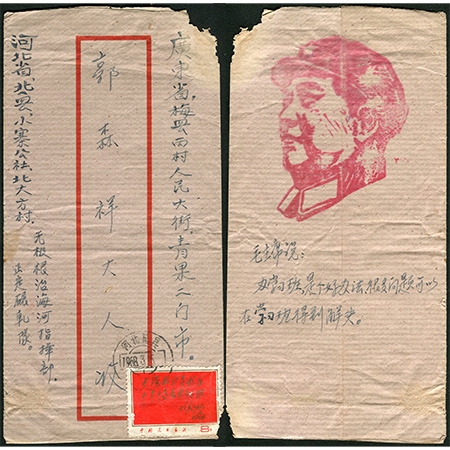 廣东省,梅县丙村人民大街,青果二门市。
郭森祥大人收
河北省,小寨公社,北大方村,
无极根治海河指挥部,
队。
河北
1968.3
中国人民邮政 8分
毛主席说:
办学习班,是个好办法,很多问题可以
在学习班得到解决。